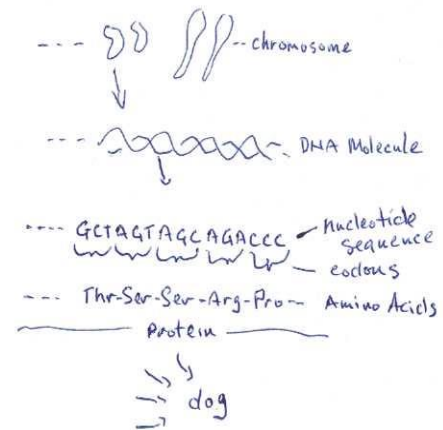 ---- chromosome
---- DNA Molecule
---- GCTAGTAGCAGACCC nucleotide
sequence
codons
--- Thr-Ser-Ser-Arg-Pro-- Amino Acids
Protein
dog